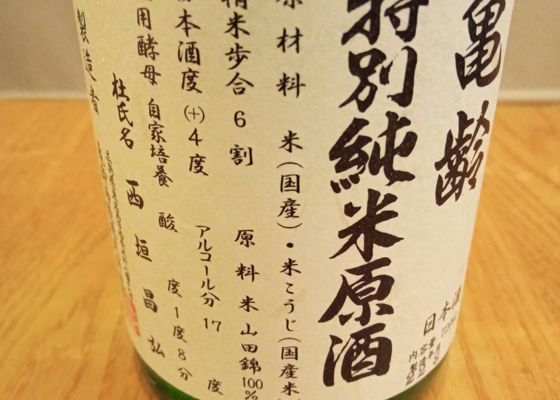 亀齢
日本酒
特別純米原酒
原材料 米(国産)・米こうじ(国産米
精米歩合6割 原料米山田錦100%
本酒度(+)4度 アルコール分17度
用酵母 自家培養 酸度1度8分
杜氏名 西垣昌弘
製造者